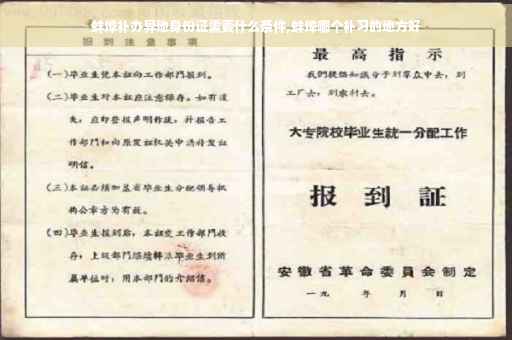 蚌埠补办异地身份证需要什么条件,蚌埠哪个补习的地方好
报到注意事项
(一)毕业生凭本证向工作部門报到。
(二)毕业生对本证应注意保存。如有遗
失,应即登报声明作废,并报告工
作部門和向原发证机关申請补发证
明信。
(三)本证必须加盖省毕业生分配领导机
构公章方为有效。
(四)毕业生报到后,本证交工作部門收
存,上级部門
毕业生到所
属单位时,用本部門的介绍信。
最高指示
我們提倡知識分子到羣众中去,到
工厂去,到农村去。
大专院校毕业生統一分配工作
报到証
安徽省革命委員会制定
一九 年 月 日